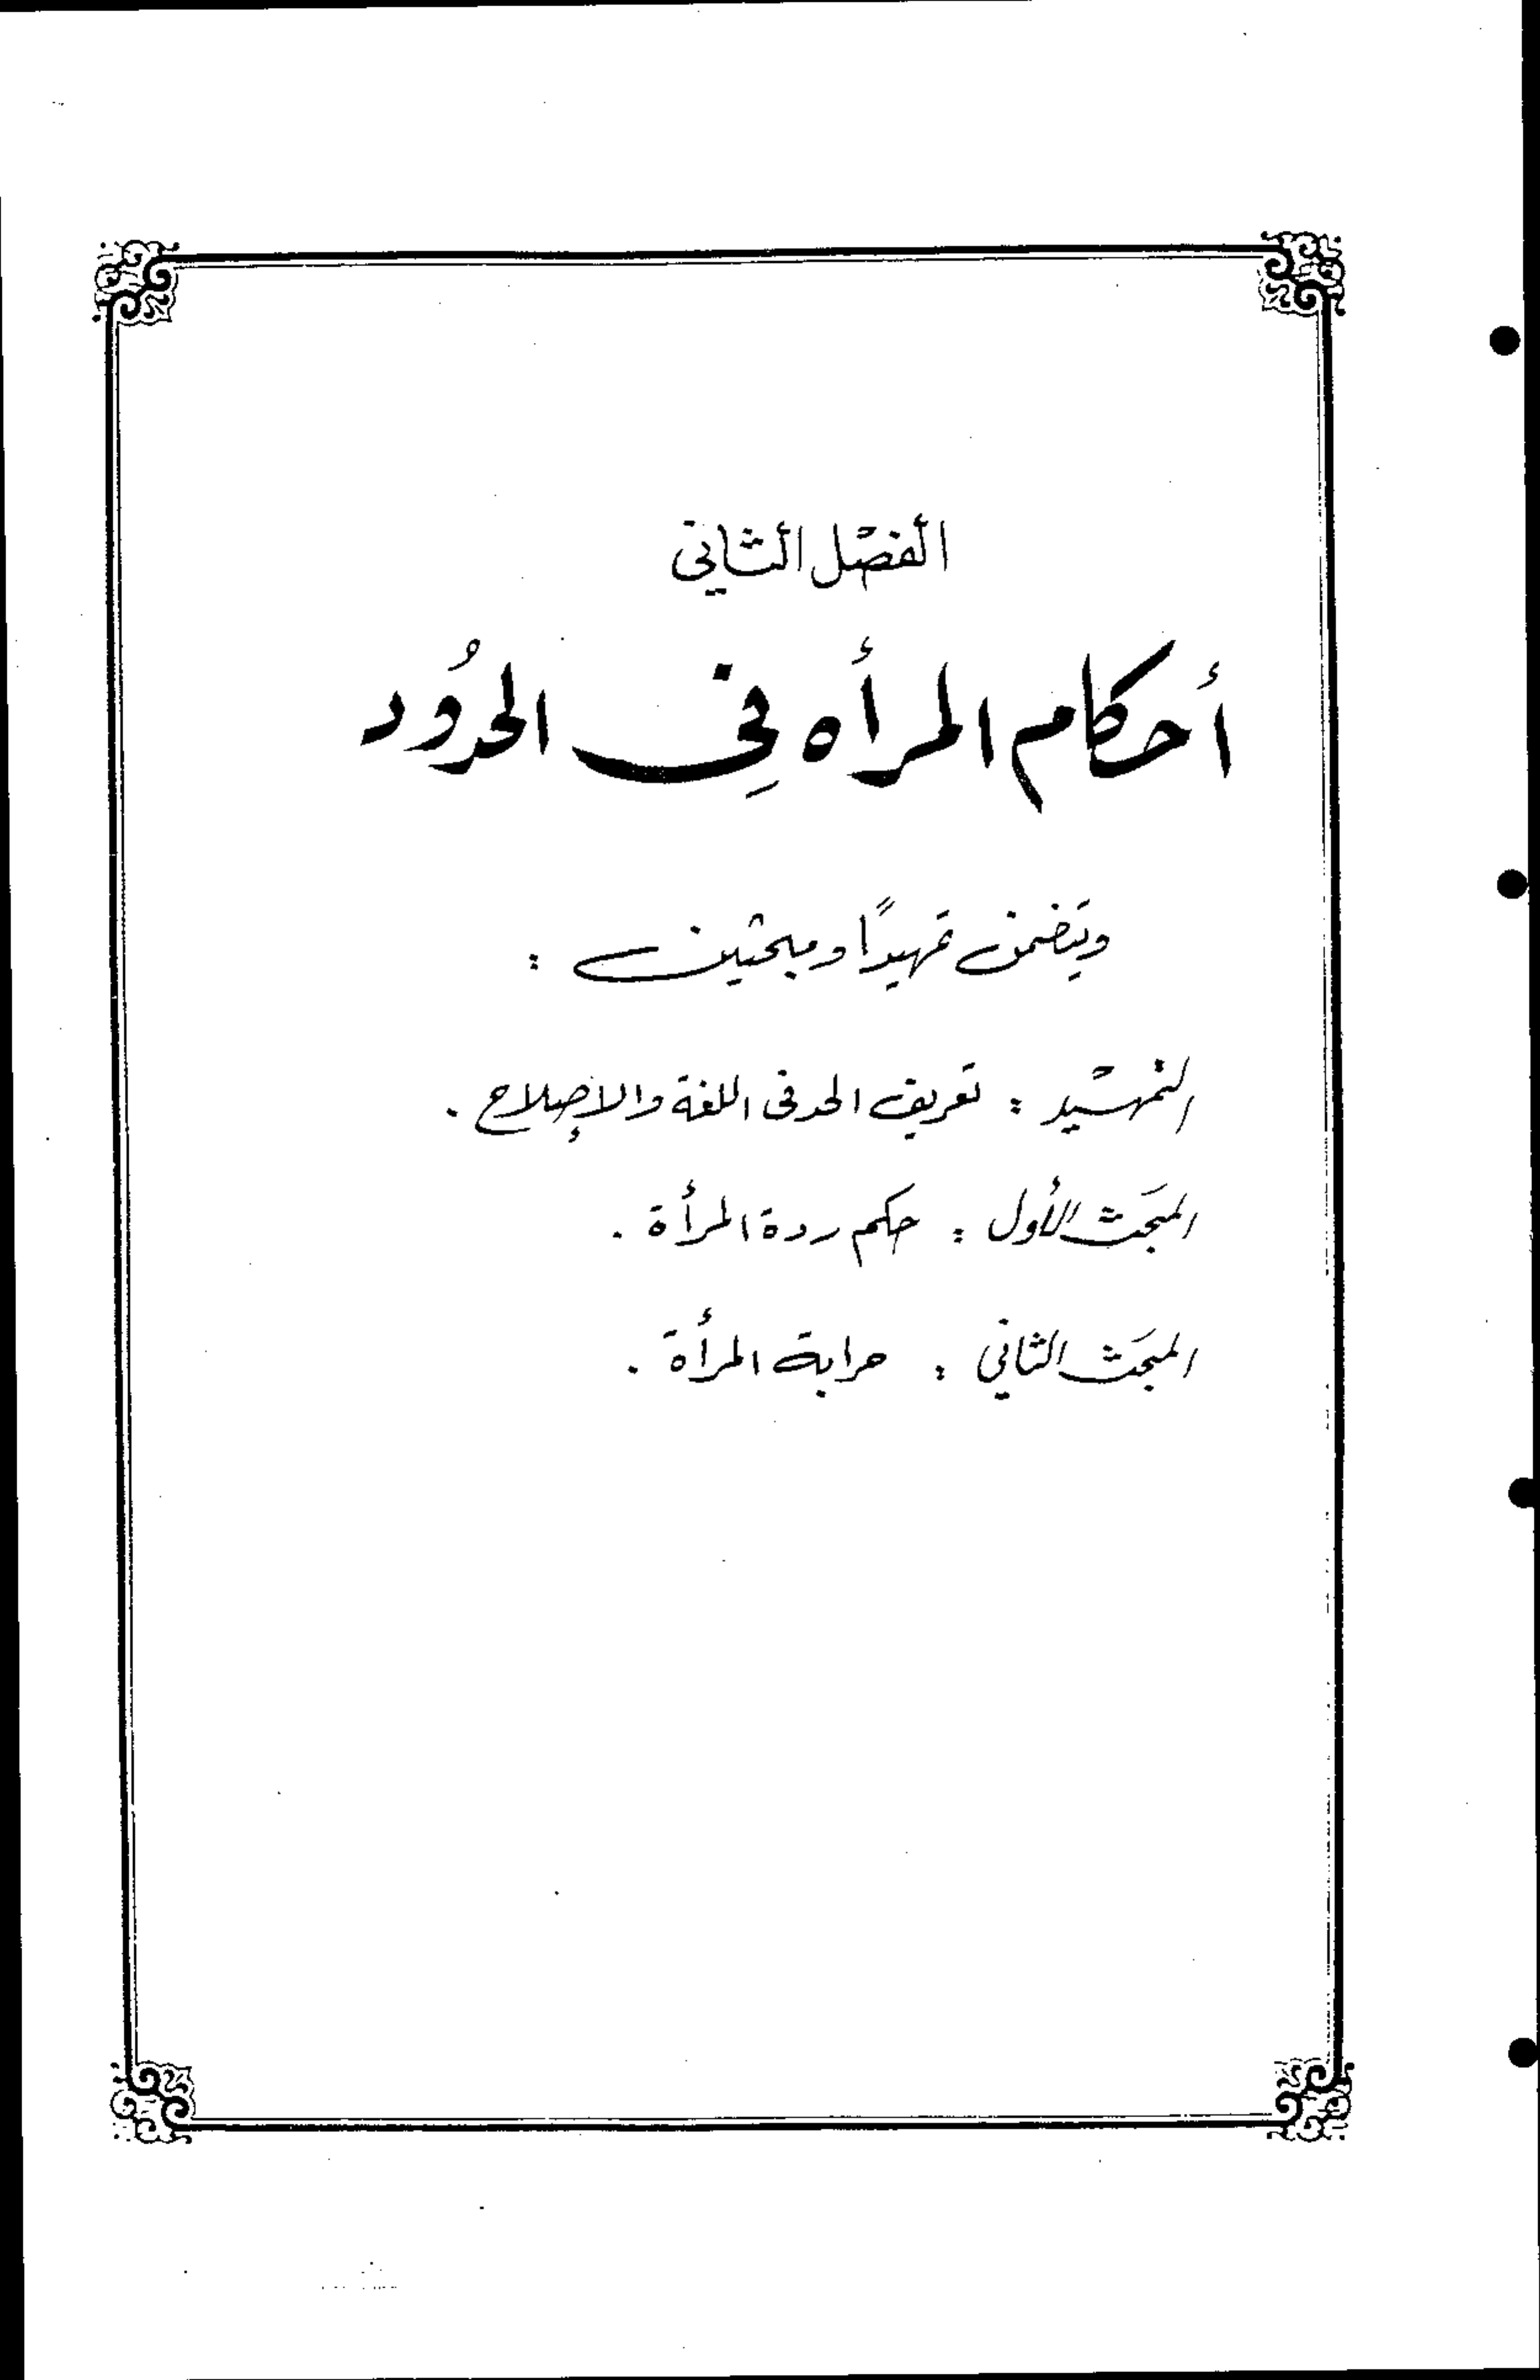 الفصل الثاني
أحكام المرأه في الحدُود
ويتضمن تمهيدًا ومبحثين :
التمهيد : تعريف الحد فى اللغة والإصلاح .
المبحَث الأول : حكم ردة المرأة .
المبحَث الثاني : حرابة المرأة .